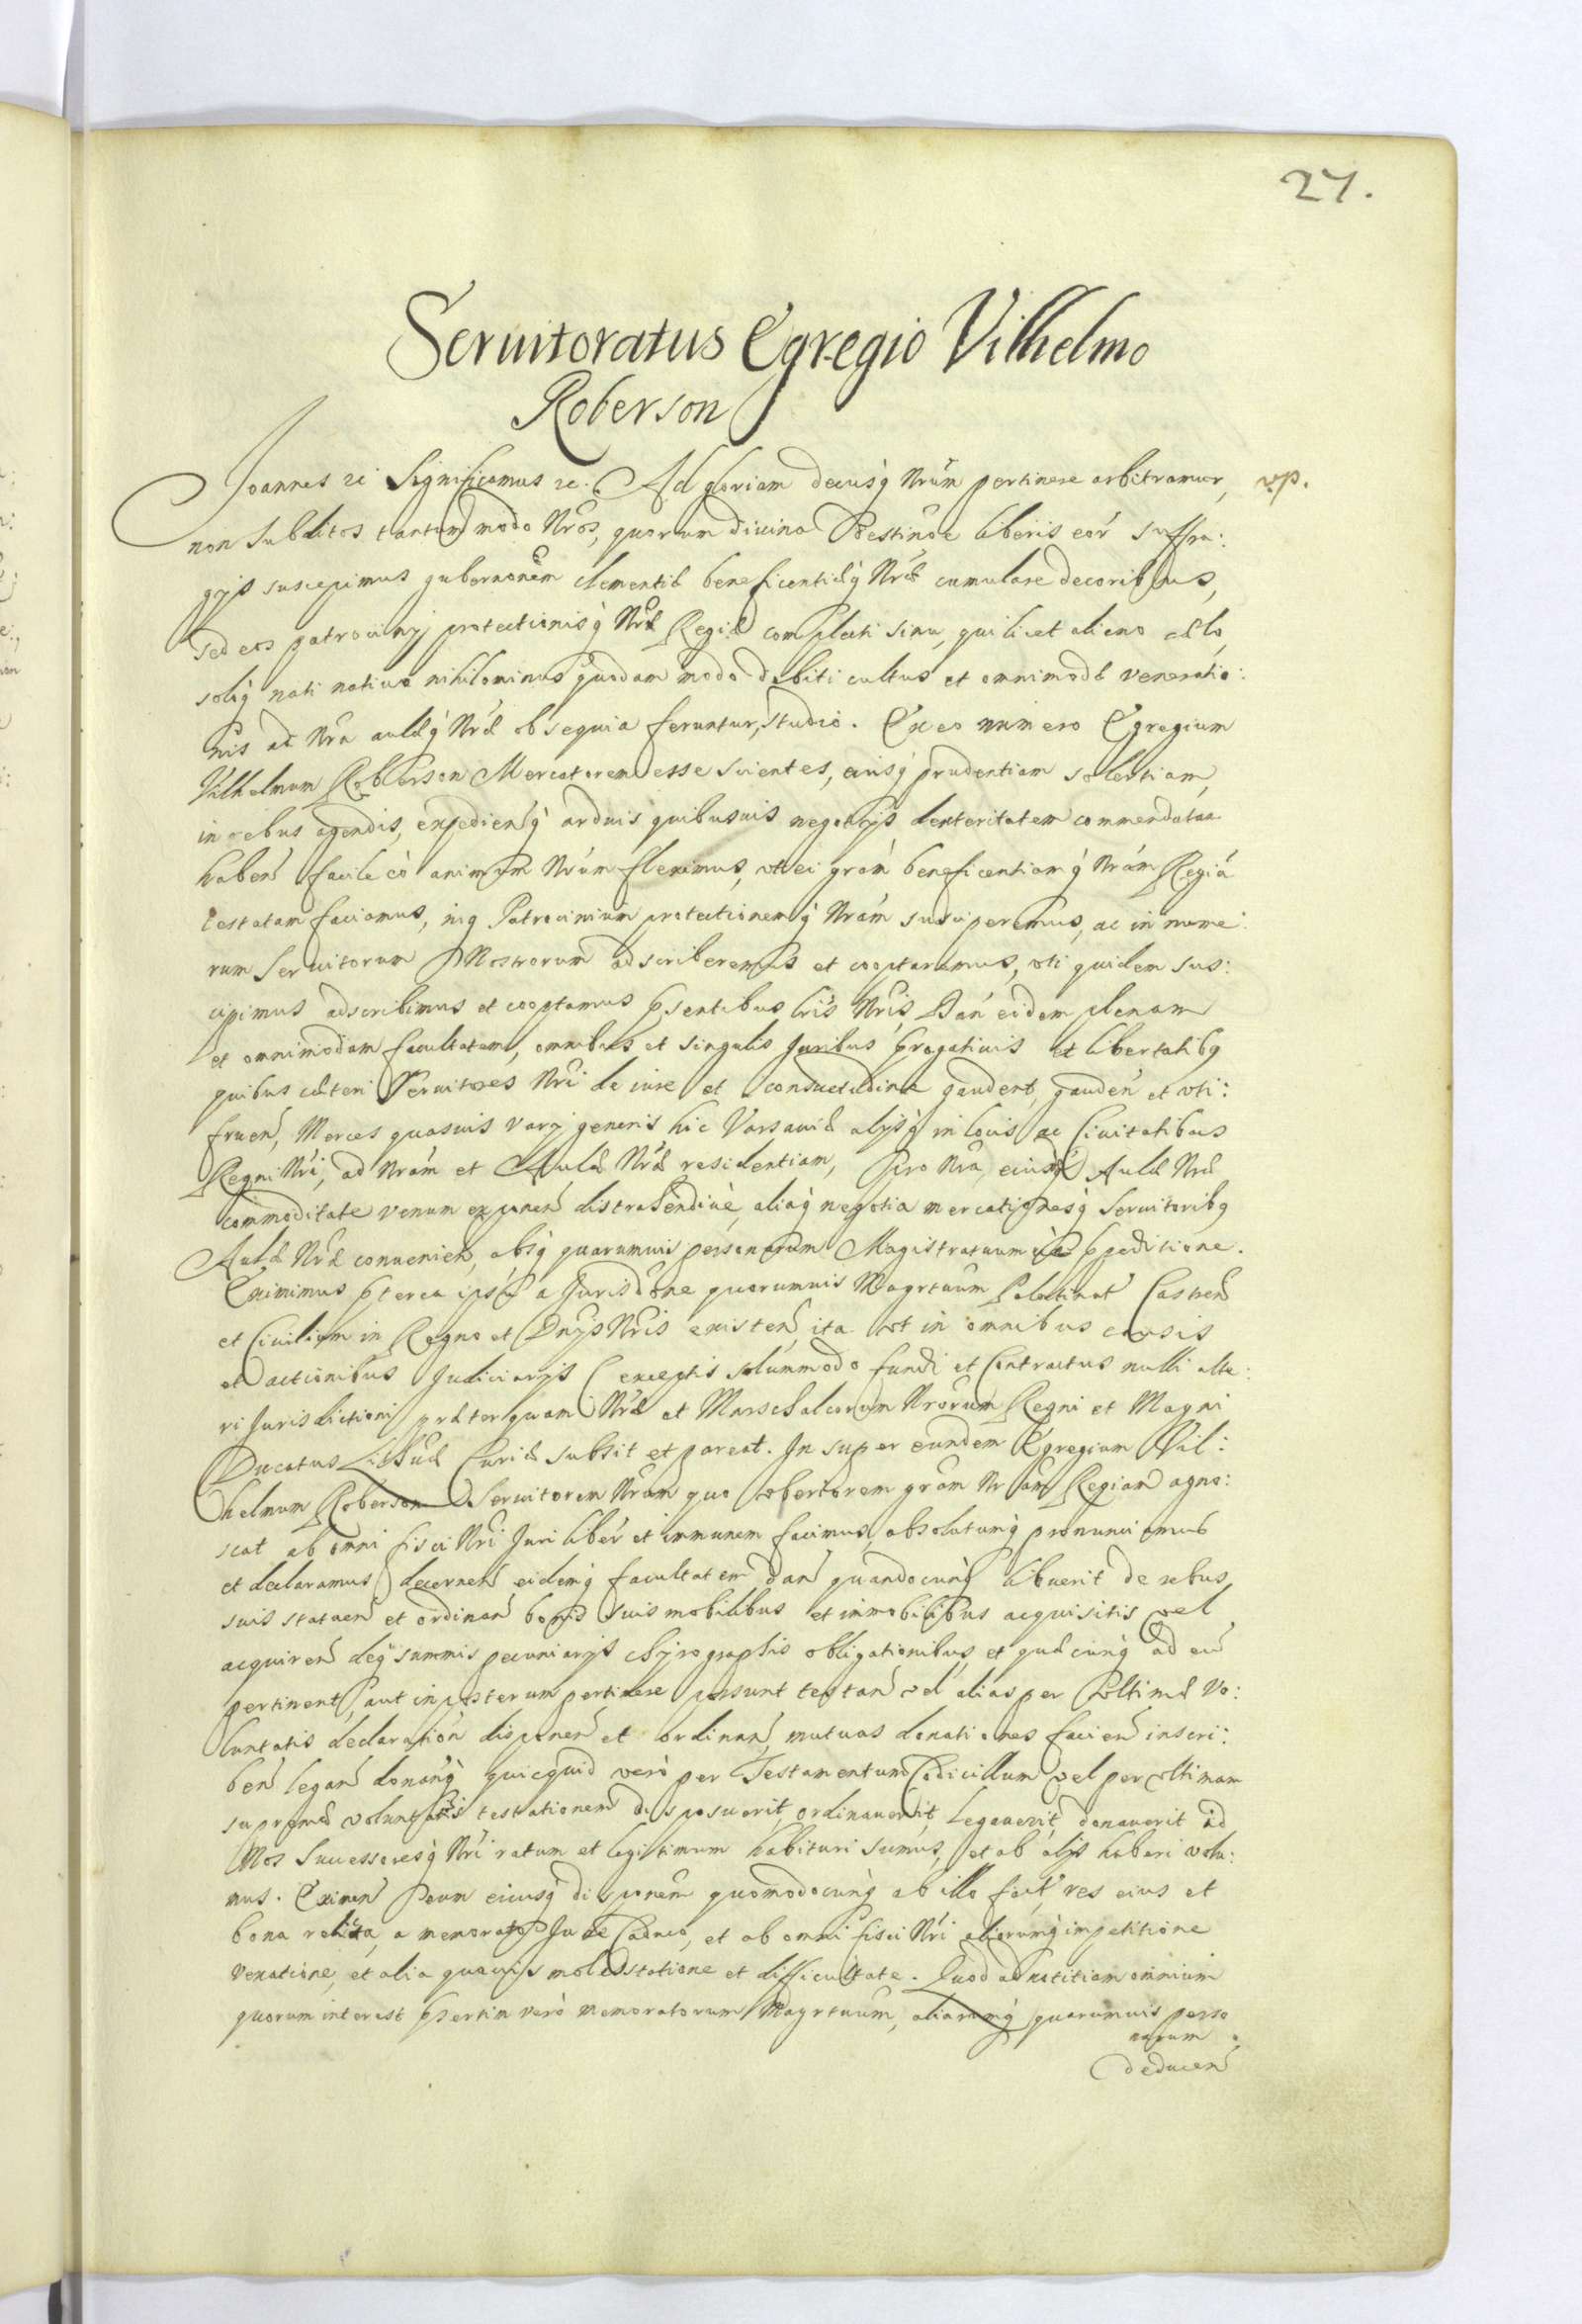 27.
Seruitoratus Egregio Vilhelmo
Roberson
Joannes etc Significamus etc. Ad gloriam decusq́ Nrúm pertinere arbitramur, vp.
non Subditos tantummodo Nros, quorum diuina Destinõe liberis eor̃ suffra:
gijs suscepimus gubernonẽm clementiæ beneficentiæq́ Nræ cumulare decoribus,
sed eos patrocinij protectionisq́ Nræ Regiæ complecti sinu, qui licet alieno cælo,
soloq́ nati natiuo nihilominus quodam modo debiti cultus et omnimodæ veneratio:
nis ad Nra aulæq́ Nræ obsequia feruntur, studio. Ex eo numero Egregium
Vilhelmum Roberson Mercatorem esse scientes, eiusq́ prudentiam solertiam,
in rebus agendis, expediendq́ arduis quibusuis negotijs dexteritatem commendatam
haben̄ facile eò animum Nrúm fleximus, vt ei grám beneficentiamq́ Nrám Regiá
testatam faciamus, inq Patrocinium protectionemq́ Nrám susciperemus, ac in nume:
rum Seruitorum Nostrorum adscriberemus et cooptaremus, vti quidem sus:
cipimus adscribimus et cooptamus pŝentibus lris Nris, Dan̄ eidem plenam
et omnimodam facultatem, omnibus et singulis Juribus progatiuis et libertatibq
quibus cæteri Seruitores Nri de iure et consuetudine gaudent, gauden̄ et vti:
fruen̄, Merces quasuis varij generis hic Varsauiæ alijsq́ in locis ac Ciuitatibus
Regni Nri, ad Nrám et Aulæ Nræ residentiam, pro Nra, eiusq́ Aulæ Nræ
commoditate venum exponen̄ distrahendiuè, aliaq́ negotia mercationesq́ Seruitoribq
Aulæ Nræ conuenien̄, absq́ quarumuis personarum Magistratuumuè ppeditione.
Eximimus pterea ipsũ a Jurisdõne quorumuis Magrtuum Palatinat̃ Castren̄
et Ciuilium in Regno et Dnijs Nris existen̄, ita vt in omnibus causis
et actionibus Judiciarijs (exceptis solummodo fundi et Contractus nulli alte:
ri Jurisdictioni præterquam Nræ et Marschalcorum Nrorum Regni et Magni
Ducatus Lithuæ Curiæ subsit et pareat. In super eundem Egregium Vil:
helmum Roberson Seruitorem Nrum quo vberiorem grám Nrám Regiam agno:
scat ab omni fisci Nri Juri liber̃ et immunem facimus, absolutumq́ pronunciamus
et declaramus decernen̄ eidemq́ facultatem dan̄ quandocunq́ libuerit de rebus
suis statuen̄ et ordinan̄ bonis suis mobilibus et immobilibus acquisitis vel
acquiren̄ deq́ summis pecuniarijs chyrographis obligationibus, et quæcunq́ ad eũ
pertinent, aut in posterum pertinere possunt testan̄ vel alias per vltimæ vo:
luntatis declaration̄ disponen̄ et ordinan̄, mutuas donationes facien̄ inscri:
ben̄ legan̄ donanq́ quicquid verò per Testamentum Codicillum vel per vltimam
supremæ voluntatis testationem disposuerit, ordinauerit, legauerit, donauerit id
Nos Successoresq́ Nri ratum et legitimum habituri sumus, et ab alijs haberi volu:
mus. Eximen̄ quomodocunq́ ab illo res eius et
bona relicta, a memorato Jure Caduco, et ab omni fisci Nri aliorumq́ impetitione
vexatione, et alia quauis molestatione et difficultate. Quod ad notitiam omnium
quorum interest psertim verò memoratorum Magrtuum, aliarumq́ quarumuis perso
narum.
deducen̄